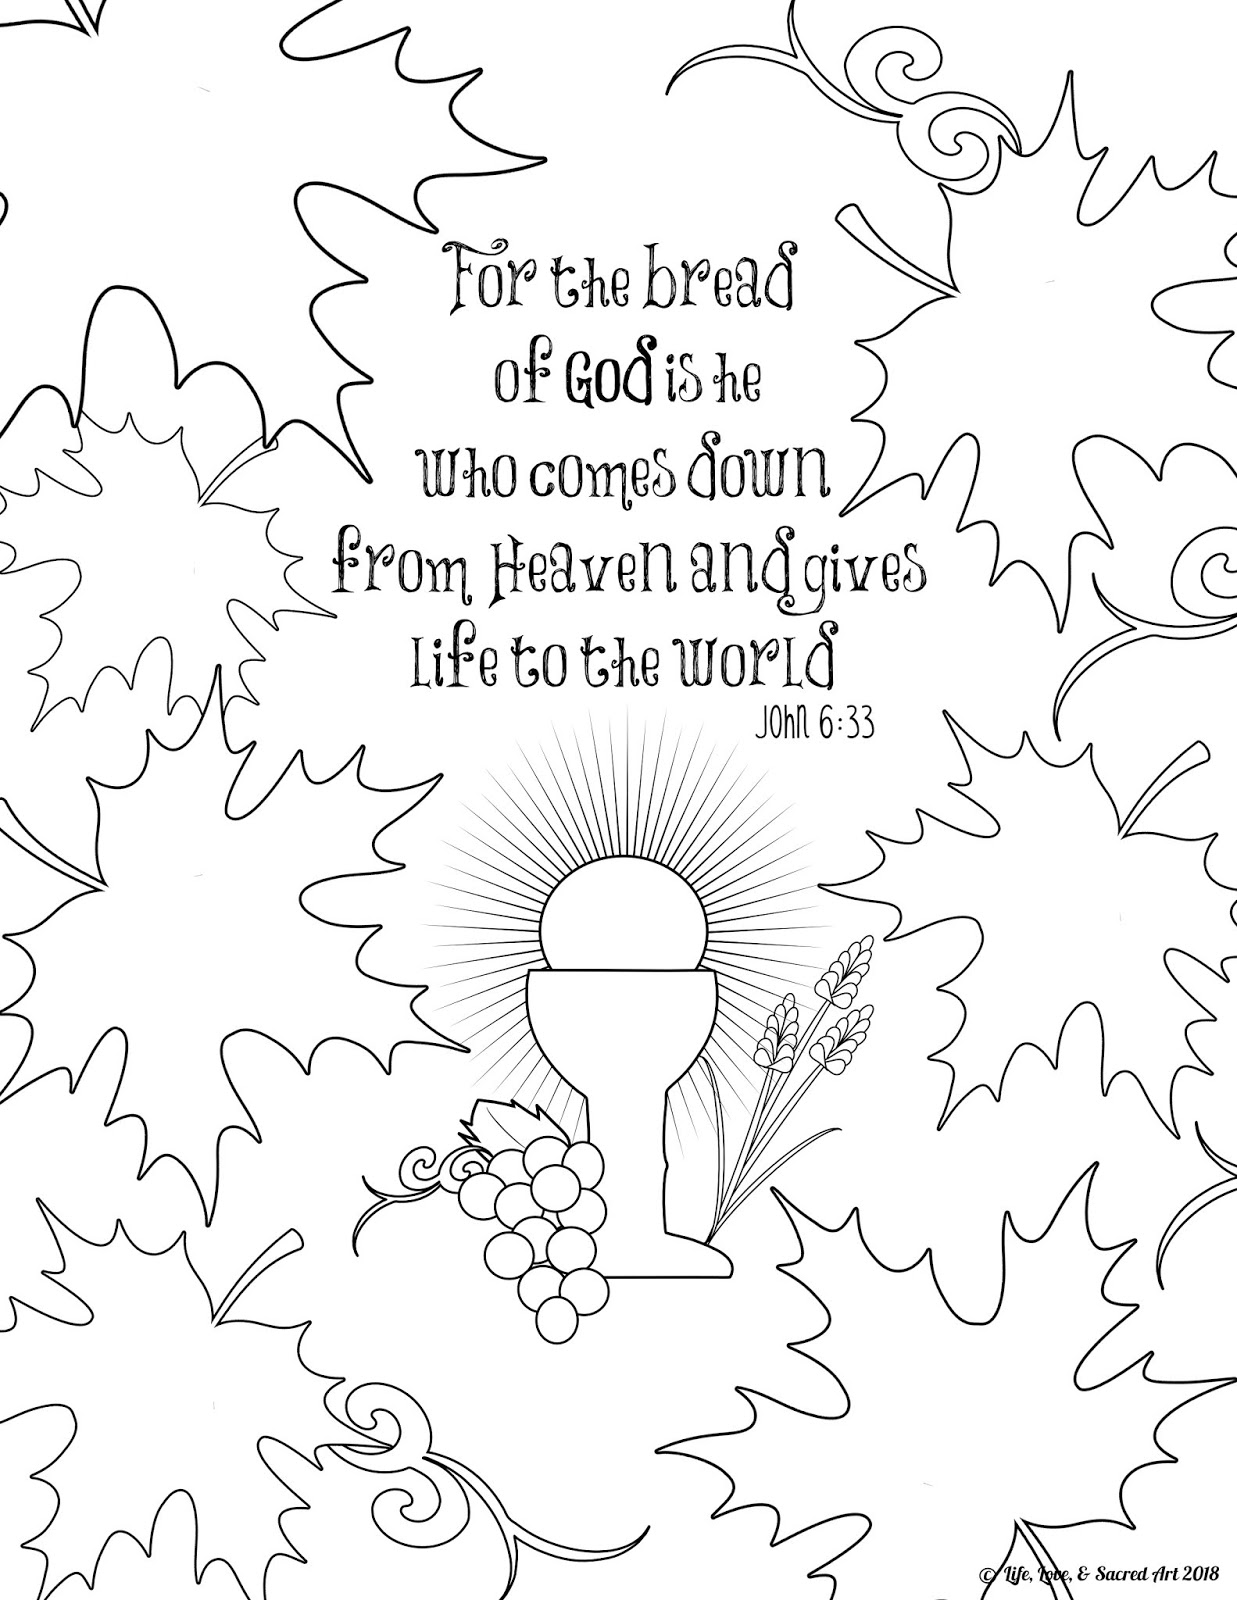 For the bread
of God is he
who comes down
from Heaven and gives
Life to the world
John 6:33
© Life, Love, & Sacred Art 2018